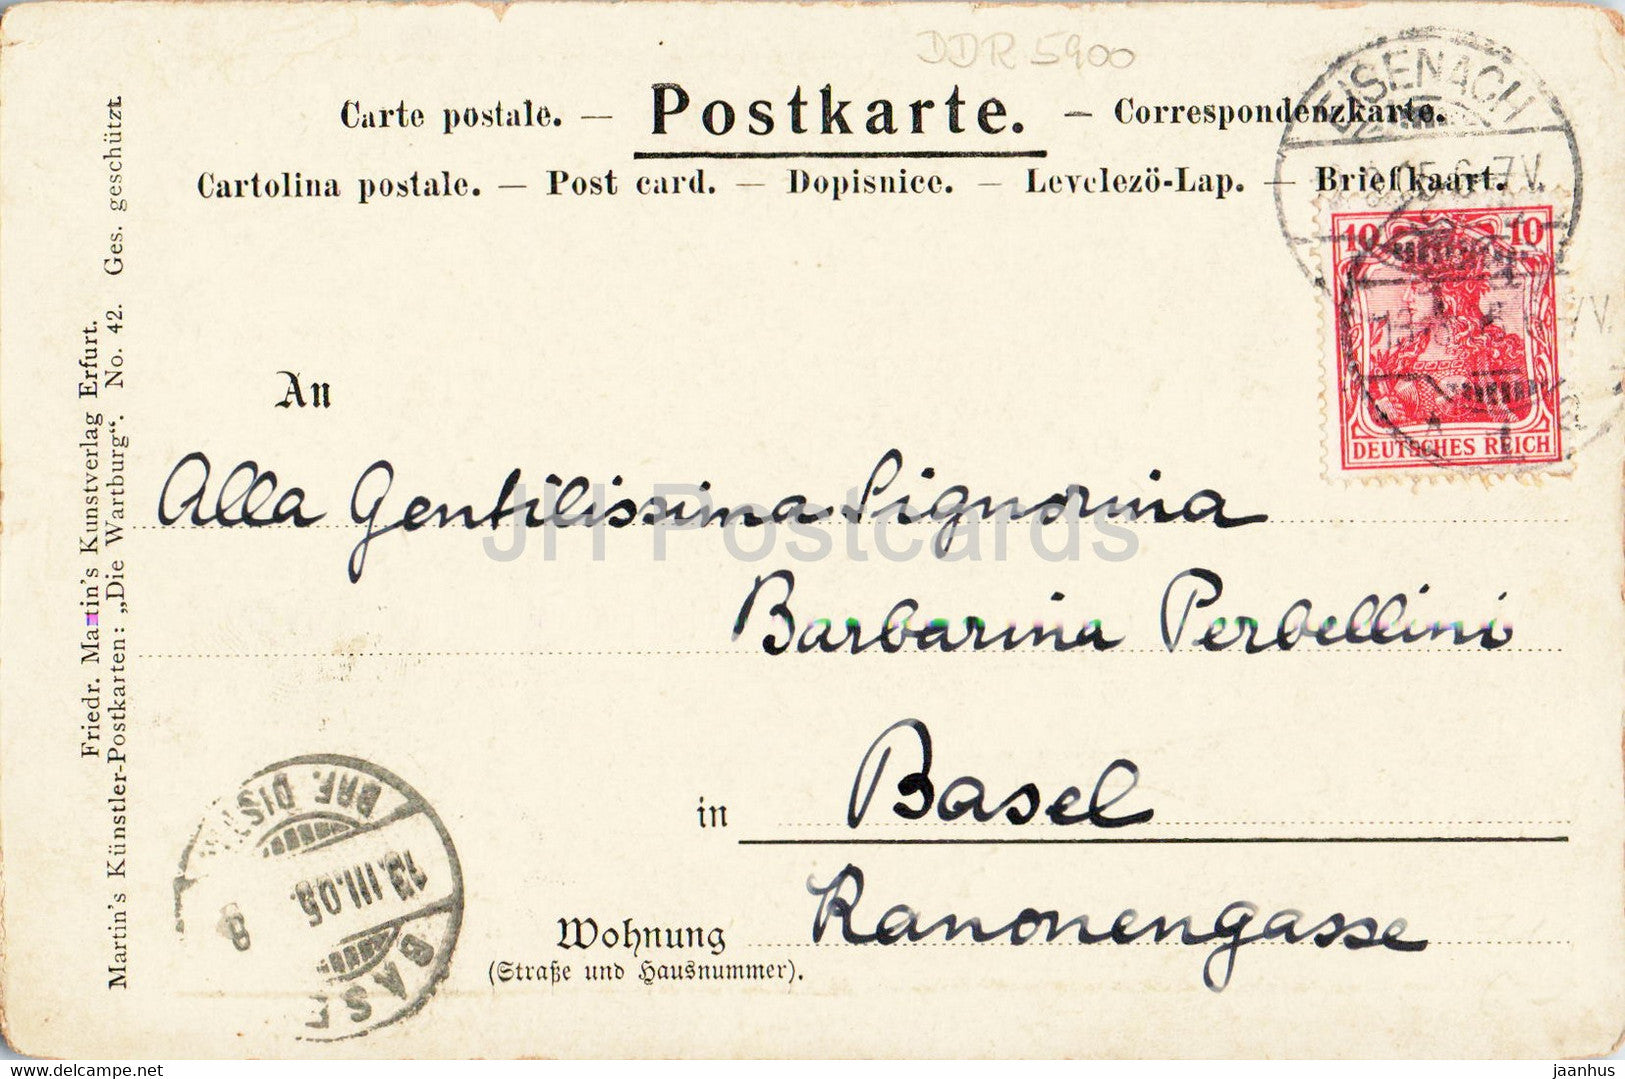 DDR 5900
Carte postale. — Postkarte. — Correspondenzkarte.
Cartolina postale. — Post card. — Dopisnice. — Levelezö-Lap. — Briefkaart.
EISENACH
10 10
DEUTSCHES REICH
An
Alla Gentilissima Signorina
Barbarina Perbellini
in Basel
Wohnung Kanonengasse
(Straße und Hausnummer).
Friedr. Martin's Kunstverlag Erfurt.
Martin's Künstler-Postkarten: „Die Wartburg“. No. 42. Ges. geschützt.
BRF. DIST
13.III.05.
8
BASEL
JH Postcards
www.delcampe.net
jaanhus